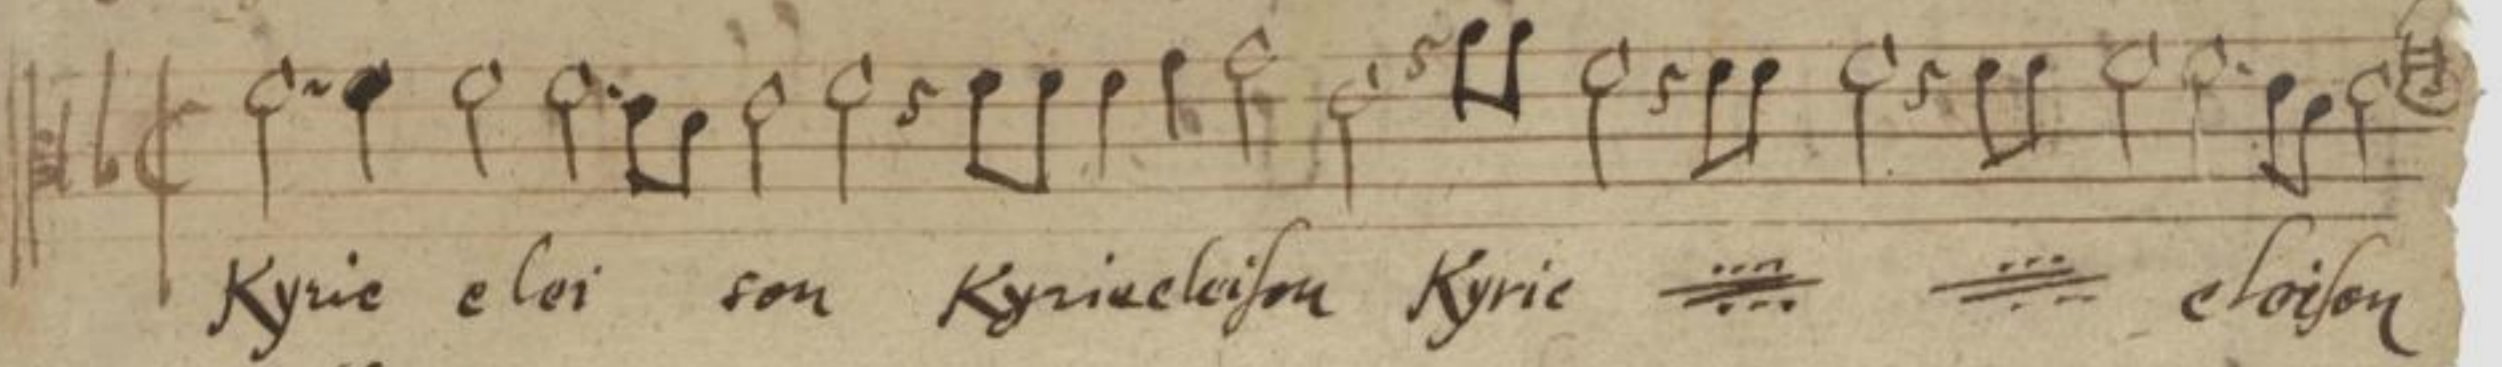 Kyrie elei son Kyrieeleison Kyrie eleison